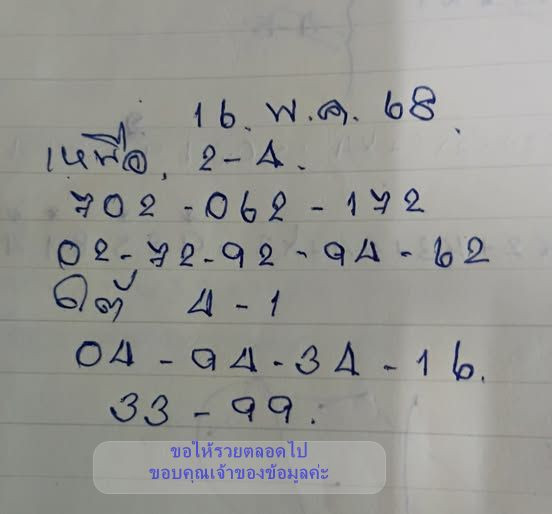 16. พ.ค. 68.
เหนือ. 2-4.
702-062-172
02-72-92-94-62
ใต้ 4-1
04-94-34-16.
33-99.
ขอให้รวยตลอดไป
ขอบคุณเจ้าของข้อมูลค่ะ